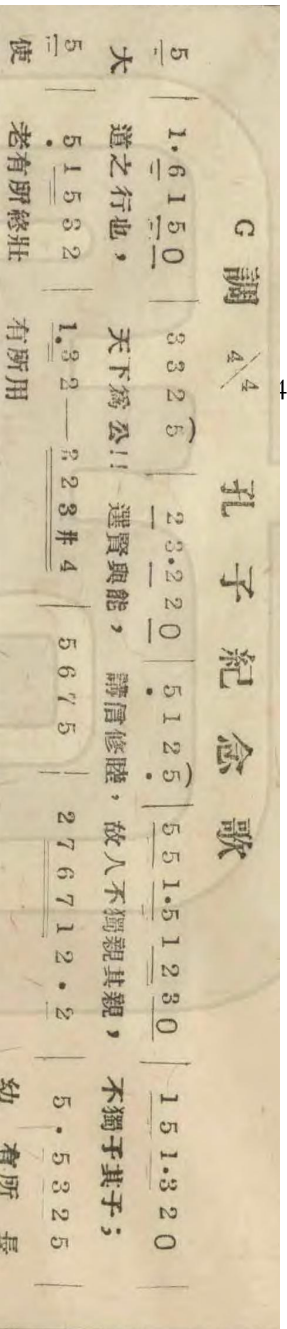 G調 4/4 孔子紀念歌
5 | 1·6 1 5 0 | 3 3 2 5 | 2 3·2 2 0 | 5 1 2 5 | 5 5 1·5 1 2 3 0 | 1 5 1·3 2 0
大 道之行也， 天下爲公!! 選賢與能， 講信修睦， 故人不獨親其親， 不獨子其子；
5 | 5 1 5 3 2 | 1·3 2 — 3 2 3 #4 | 5 6 7 5 | 2 7 6 7 1 2·2 | 5·5 3 2 5 |
使 老有所終壯 有所用 幼 有所 長